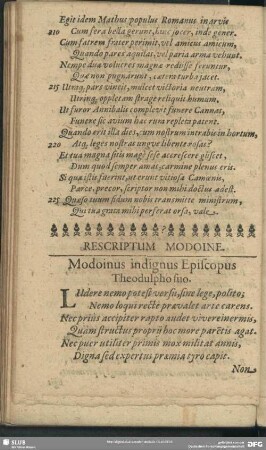 Egit idem Mathus populus Romanus in arvis
210 Cum fera bella gerunt, hinc socer, inde gener.
Cum fatrem frater perimit, vel amicus amicum,
Quando pares aquilas, vel paria arma vehunt.
Nempe duæ volucres magnæ rediisse feruntur,
Quæ non pugnarunt, cætera turba jacet.
215 Utraq; pars vincit, mulcet victoria neutram,
Utrinq; opplet am strage reliquit humum.
Ut furor Annibalis complevit funere Cannas,
Funere sic avium hæc rura repleta patent.
Quando erit illa dies, cum nostrum intrabis in hortum,
220 Atq; leges nostras ungve libente rosas?
Et tua magna sitis magè sese accrescere gliscet,
Dum quod semper amas, carmine plenus eris.
Si qua istic fuerint, ut erunt vitiosa Camœnis,
Parce, precor, scriptor non mihi doctus adest.
225 Quæso suum fidum nobis transmitte ministrum,
Qui tua gnata mihi perferat orsa, vale.
RESCRIPTUM MODOINE.
Modoinus indignus Episcopus
Theodulpho suo.
LUdere nemo potest versu, sine lege, polito;
Nemo loqui rectè prævalet arte carens.
Nec priùs accipiter rapto audet vivere inermis,
Quàm structus proprij hoc more parẽtis agat.
Nec puer utiliter primis mox militat annis,
Digna sed expertus præmia tyro capit.
Non
SLUB